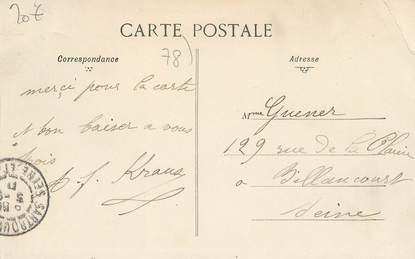 207
CARTE POSTALE
Correspondance
Adresse
78)
merci pour la carte
et bon baiser a vous
trois
Kraus
Mme Guener
129 rue de la Plaine
a Billancourt
Seine
SARTROUV
SEINE-ET